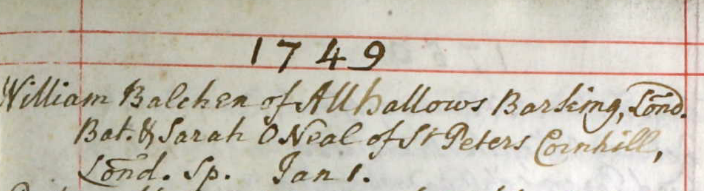 1749
William Balchen of Allhallows Barking, Lond.
Bat. & Sarah O Neal of St Peters Cornhill,
Lond. Sp. Jan 1.